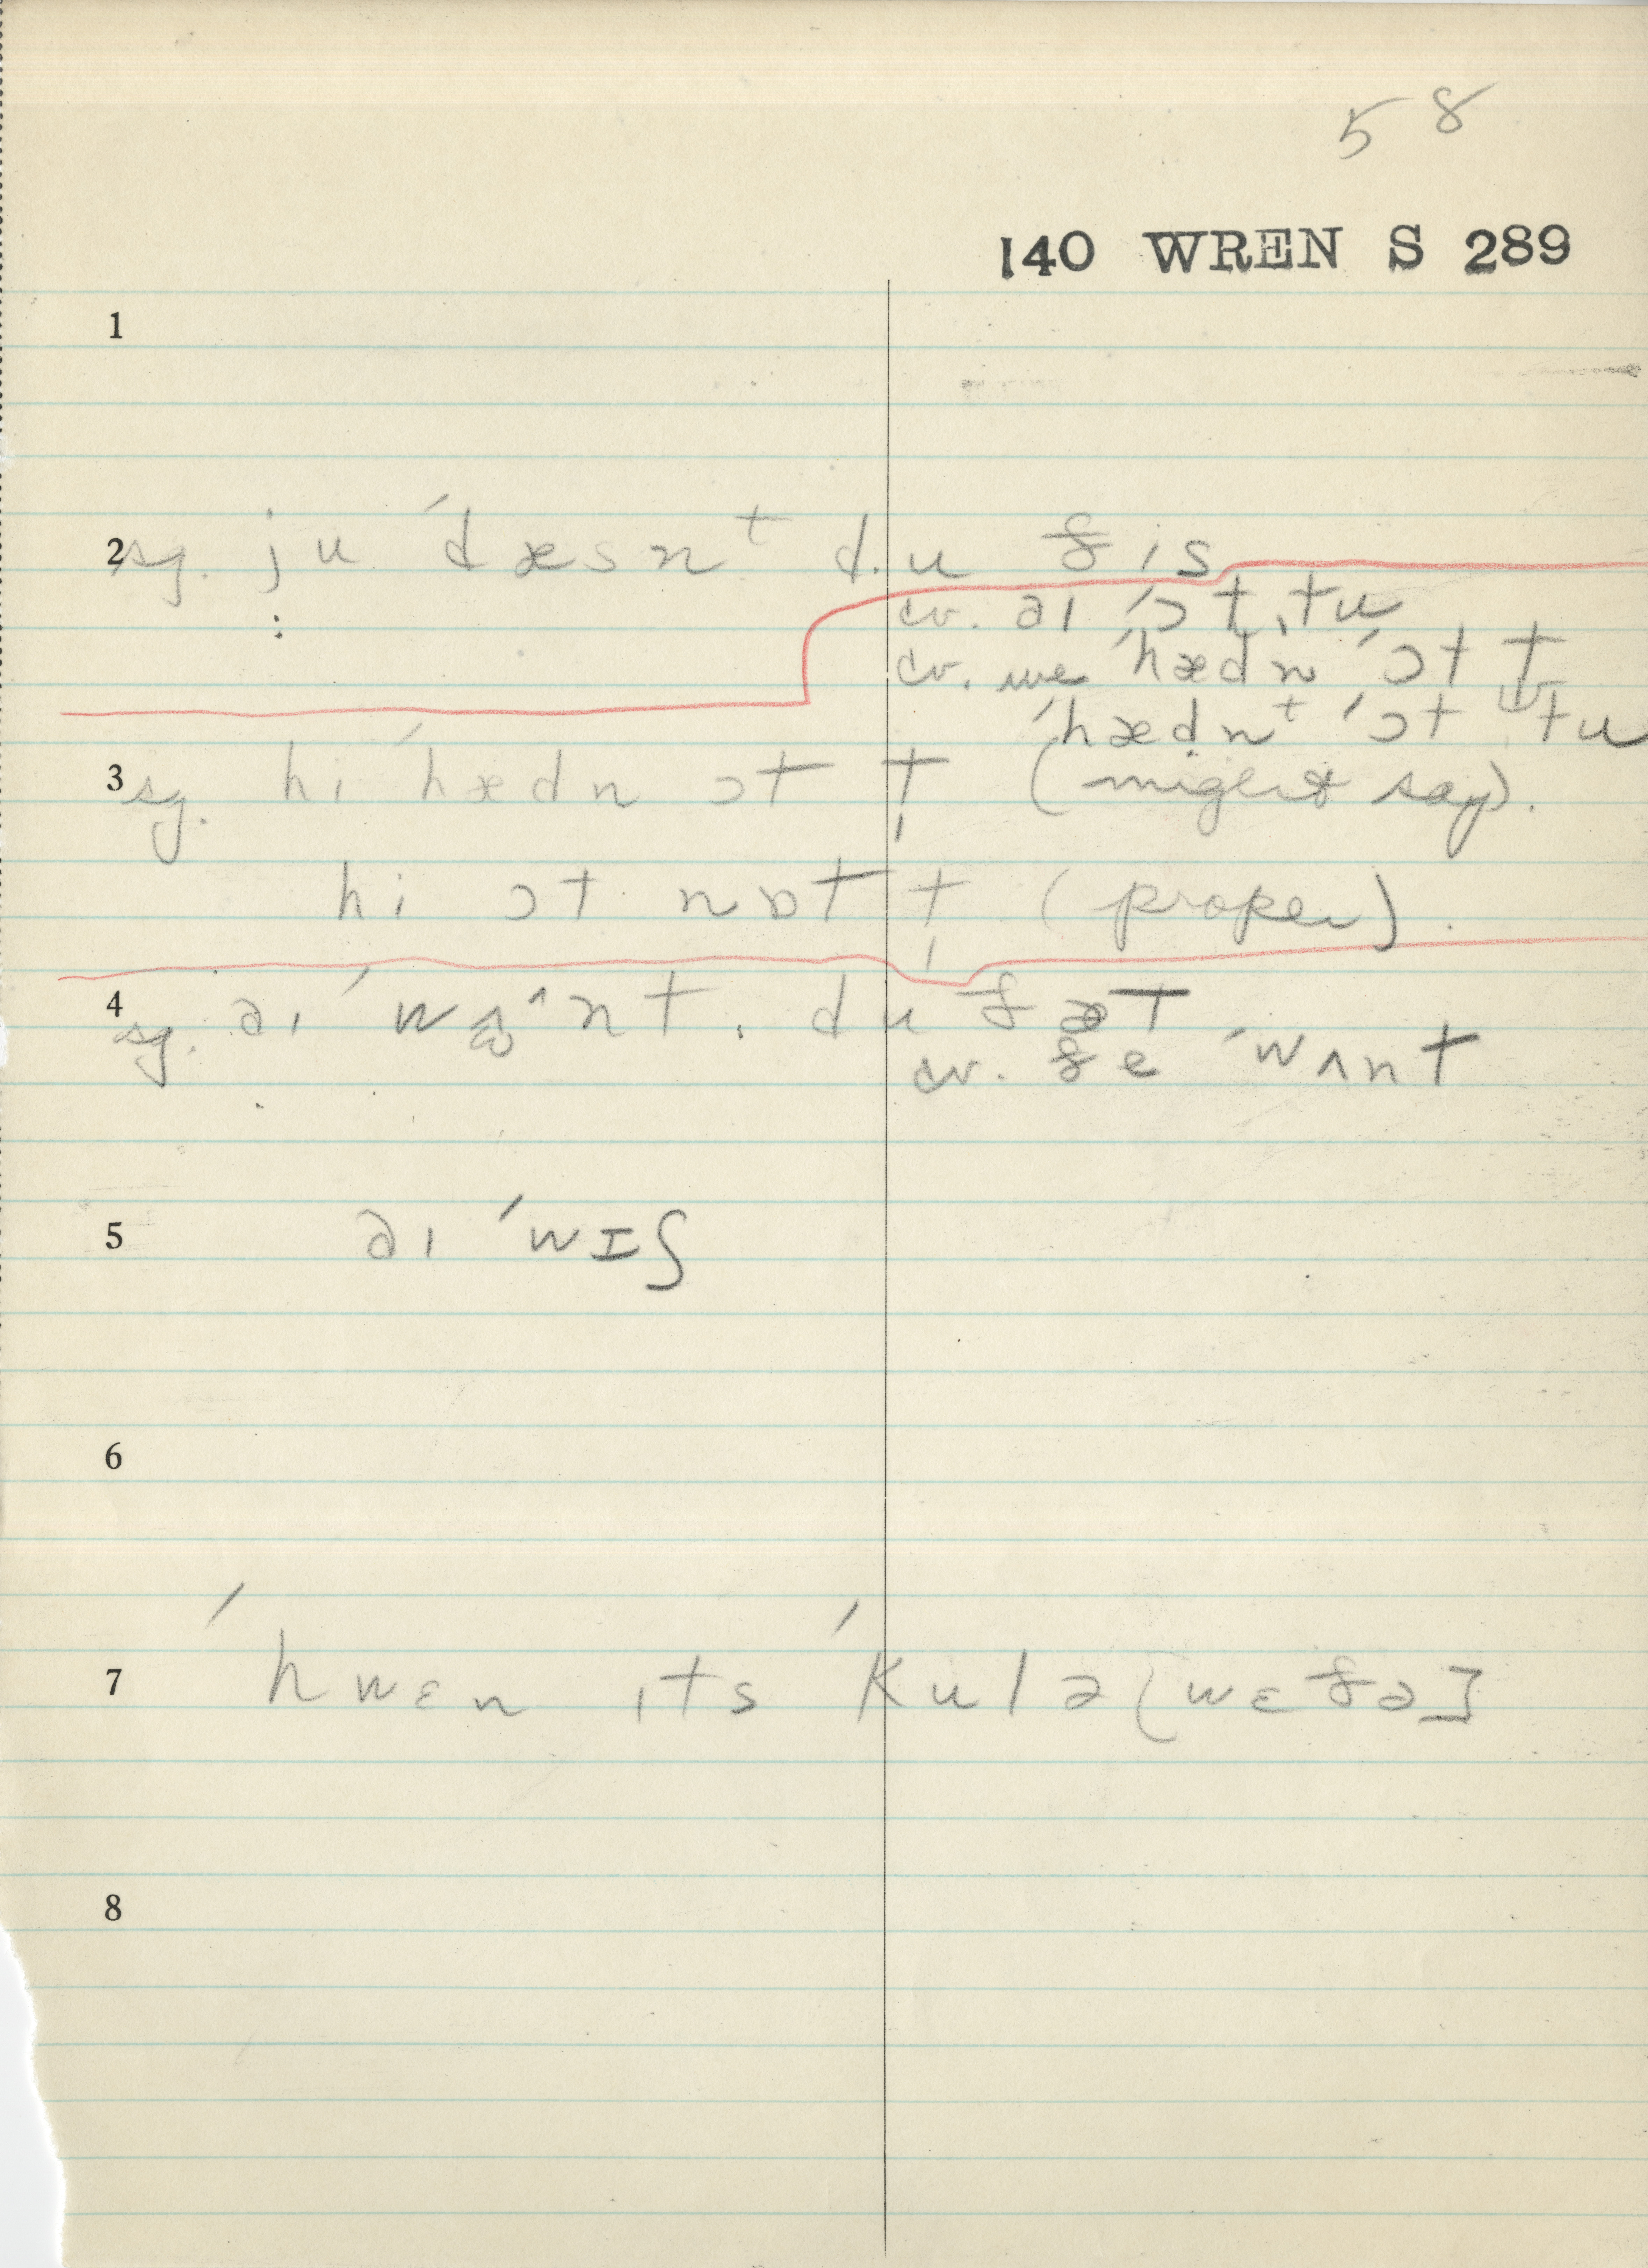 58
140 WREN S 289
1
2 sg. ju ˈdæsnᵗ du ðis
:
cv. aɪ ˈɔt tu
cv. we ˈhædn ˈɔt t
ˈhædnᵗ ˈɔt tu
3 sg. hi ˈhædn ɔt t (might say).
hi ɔt nɒt t (proper).
4 sg. aɪ ˈwɒ^nt du ðæt
cv. ðe ˈwʌnt
5 aɪ ˈwɪʃ
6
7 ˈhwɛn ɪts ˈkulə [wɛðə]
8